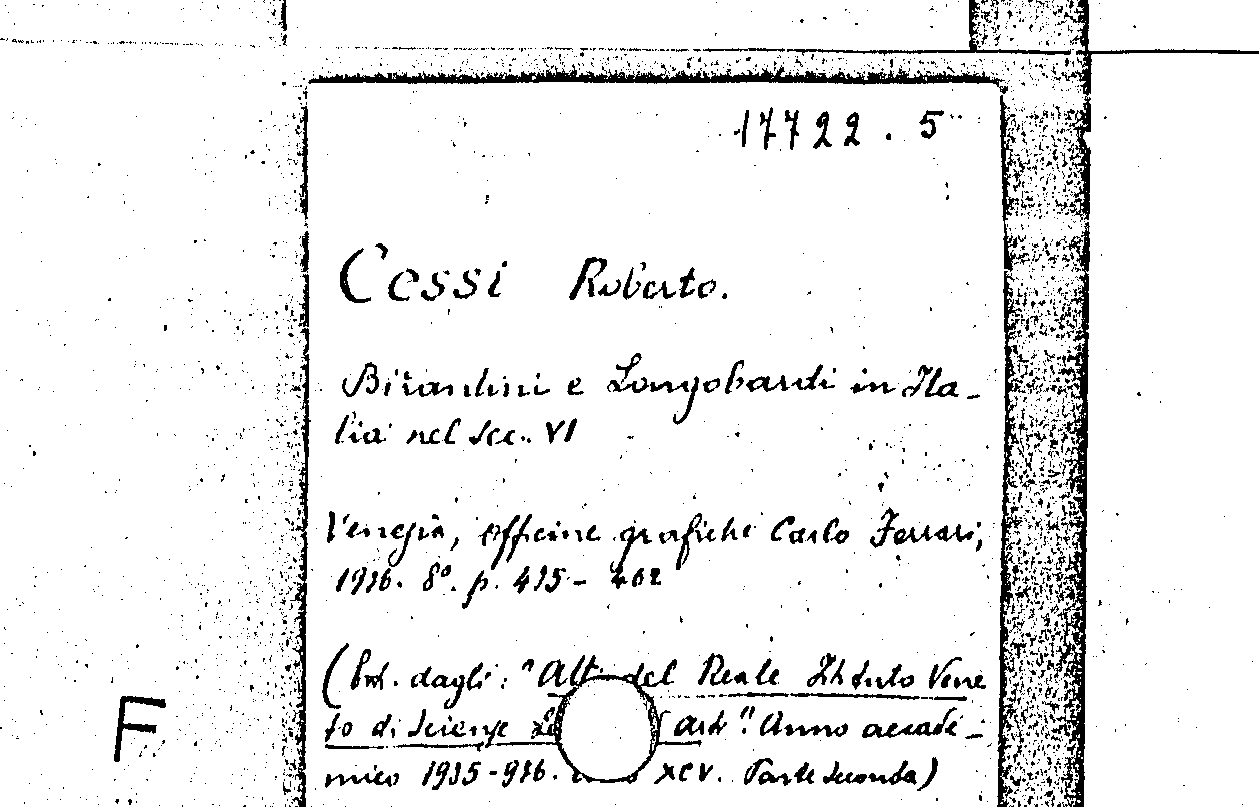 17722.5
Cessi Roberto.
Bizantini e Longobardi in Ita-
lia nel sec. VI
Venezia, officine grafiche Carlo Ferrari,
1936. 8°. p. 435-462
(Estr. dagli: "Atti del Reale Istituto Vene
to di Scienze arti". Anno accade-
F
mico 1935-936. XCV. Parte seconda)